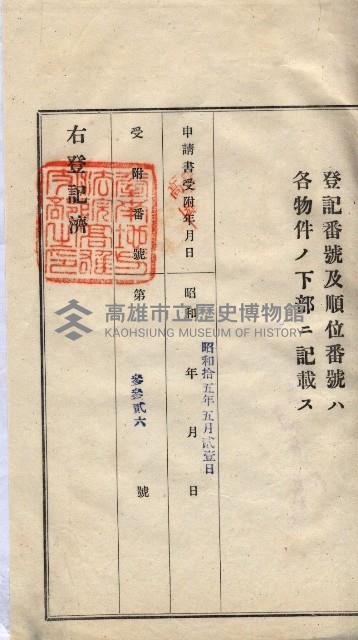 登記番號及順位番號ハ
各物件ノ下部ニ記載ス
申請書受附年月日
昭和 年 月 日
昭和拾五年五月貳壹日
受附番號
第 號
參參貳六
右登記濟
高雄市立歷史博物館
KAOHSIUNG MUSEUM OF HISTORY